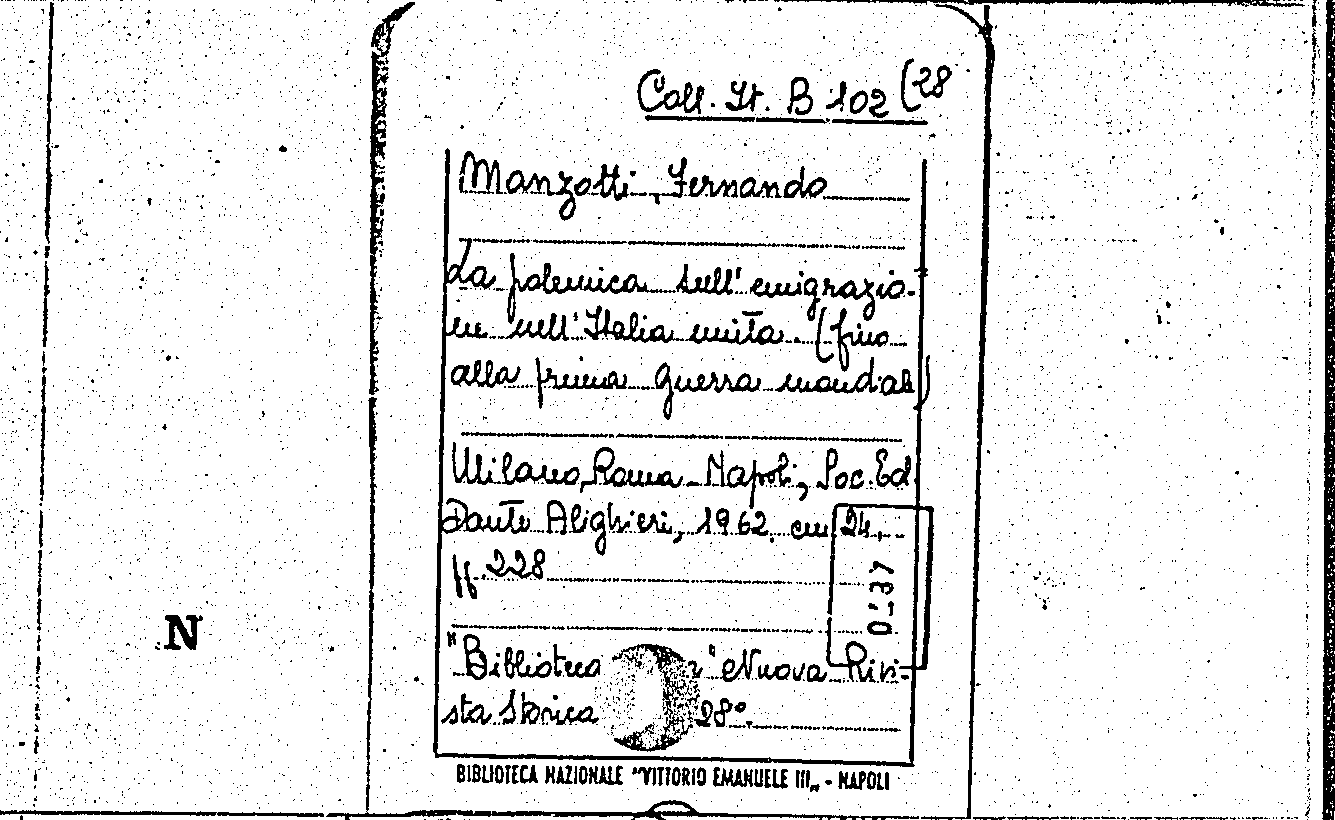 Coll. It. B 102 (28
Manzotti, Fernando
La polemica sull' emigrazio-
ne nell' Italia unita. (fino
alla prima guerra mondiale)
Milano, Roma - Napoli, Soc. Ed.
Dante Alighieri, 1962. cm 24.
pp. 228
N
"Biblioteca Nuova Rivi-
sta Storica 28°.
BIBLIOTECA NAZIONALE "VITTORIO EMANUELE III„ - NAPOLI